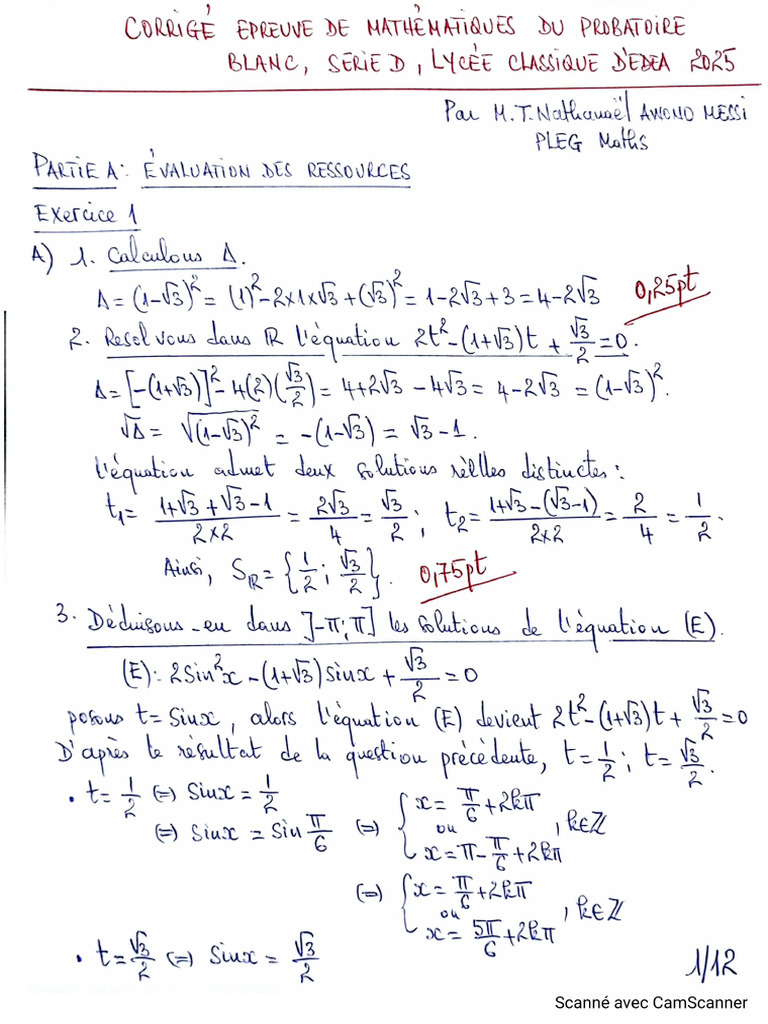 CORRIGÉ EPREUVE DE MATHÉMATIQUES DU PROBATOIRE
BLANC, SERIE D, LYCÉE CLASSIQUE D'EDEA 2025
Par M. T. Nathanaël AWONO MESSI
PLEG Maths
PARTIE A: ÉVALUATION DES RESSOURCES
Exercice 1
A) 1. Calculons Δ.
Δ = (1-√3)² = (1)² - 2×1×√3 + (√3)² = 1-2√3+3 = 4-2√3 0,25pt
2. Resolvons dans ℝ l'équation 2t² - (1+√3)t + √3/2 = 0.
Δ = [-(1+√3)]² - 4(2)(√3/2) = 4+2√3 - 4√3 = 4-2√3 = (1-√3)².
√Δ = √(1-√3)² = -(1-√3) = √3-1.
l'équation admet deux solutions réelles distinctes :
t₁ = (1+√3+√3-1)/(2×2) = 2√3/4 = √3/2 ; t₂ = (1+√3-(√3-1))/(2×2) = 2/4 = 1/2.
Ainsi, S_ℝ = {1/2 ; √3/2}. 0,75pt
3. Déduisons-en dans ]-π; π] les solutions de l'équation (E).
(E): 2Sin²x - (1+√3)sinx + √3/2 = 0
posons t = Sinx, alors l'équation (E) devient 2t² - (1+√3)t + √3/2 = 0
D'après le résultat de la question précédente, t = 1/2 ; t = √3/2.
• t = 1/2 (=) Sinx = 1/2
(=) Sinx = Sin π/6 (=) { x = π/6 + 2kπ ou x = π - π/6 + 2kπ , k∈ℤ
(=) { x = π/6 + 2kπ ou x = 5π/6 + 2kπ , k∈ℤ
• t = √3/2 (=) Sinx = √3/2
1/12
Scanné avec CamScanner